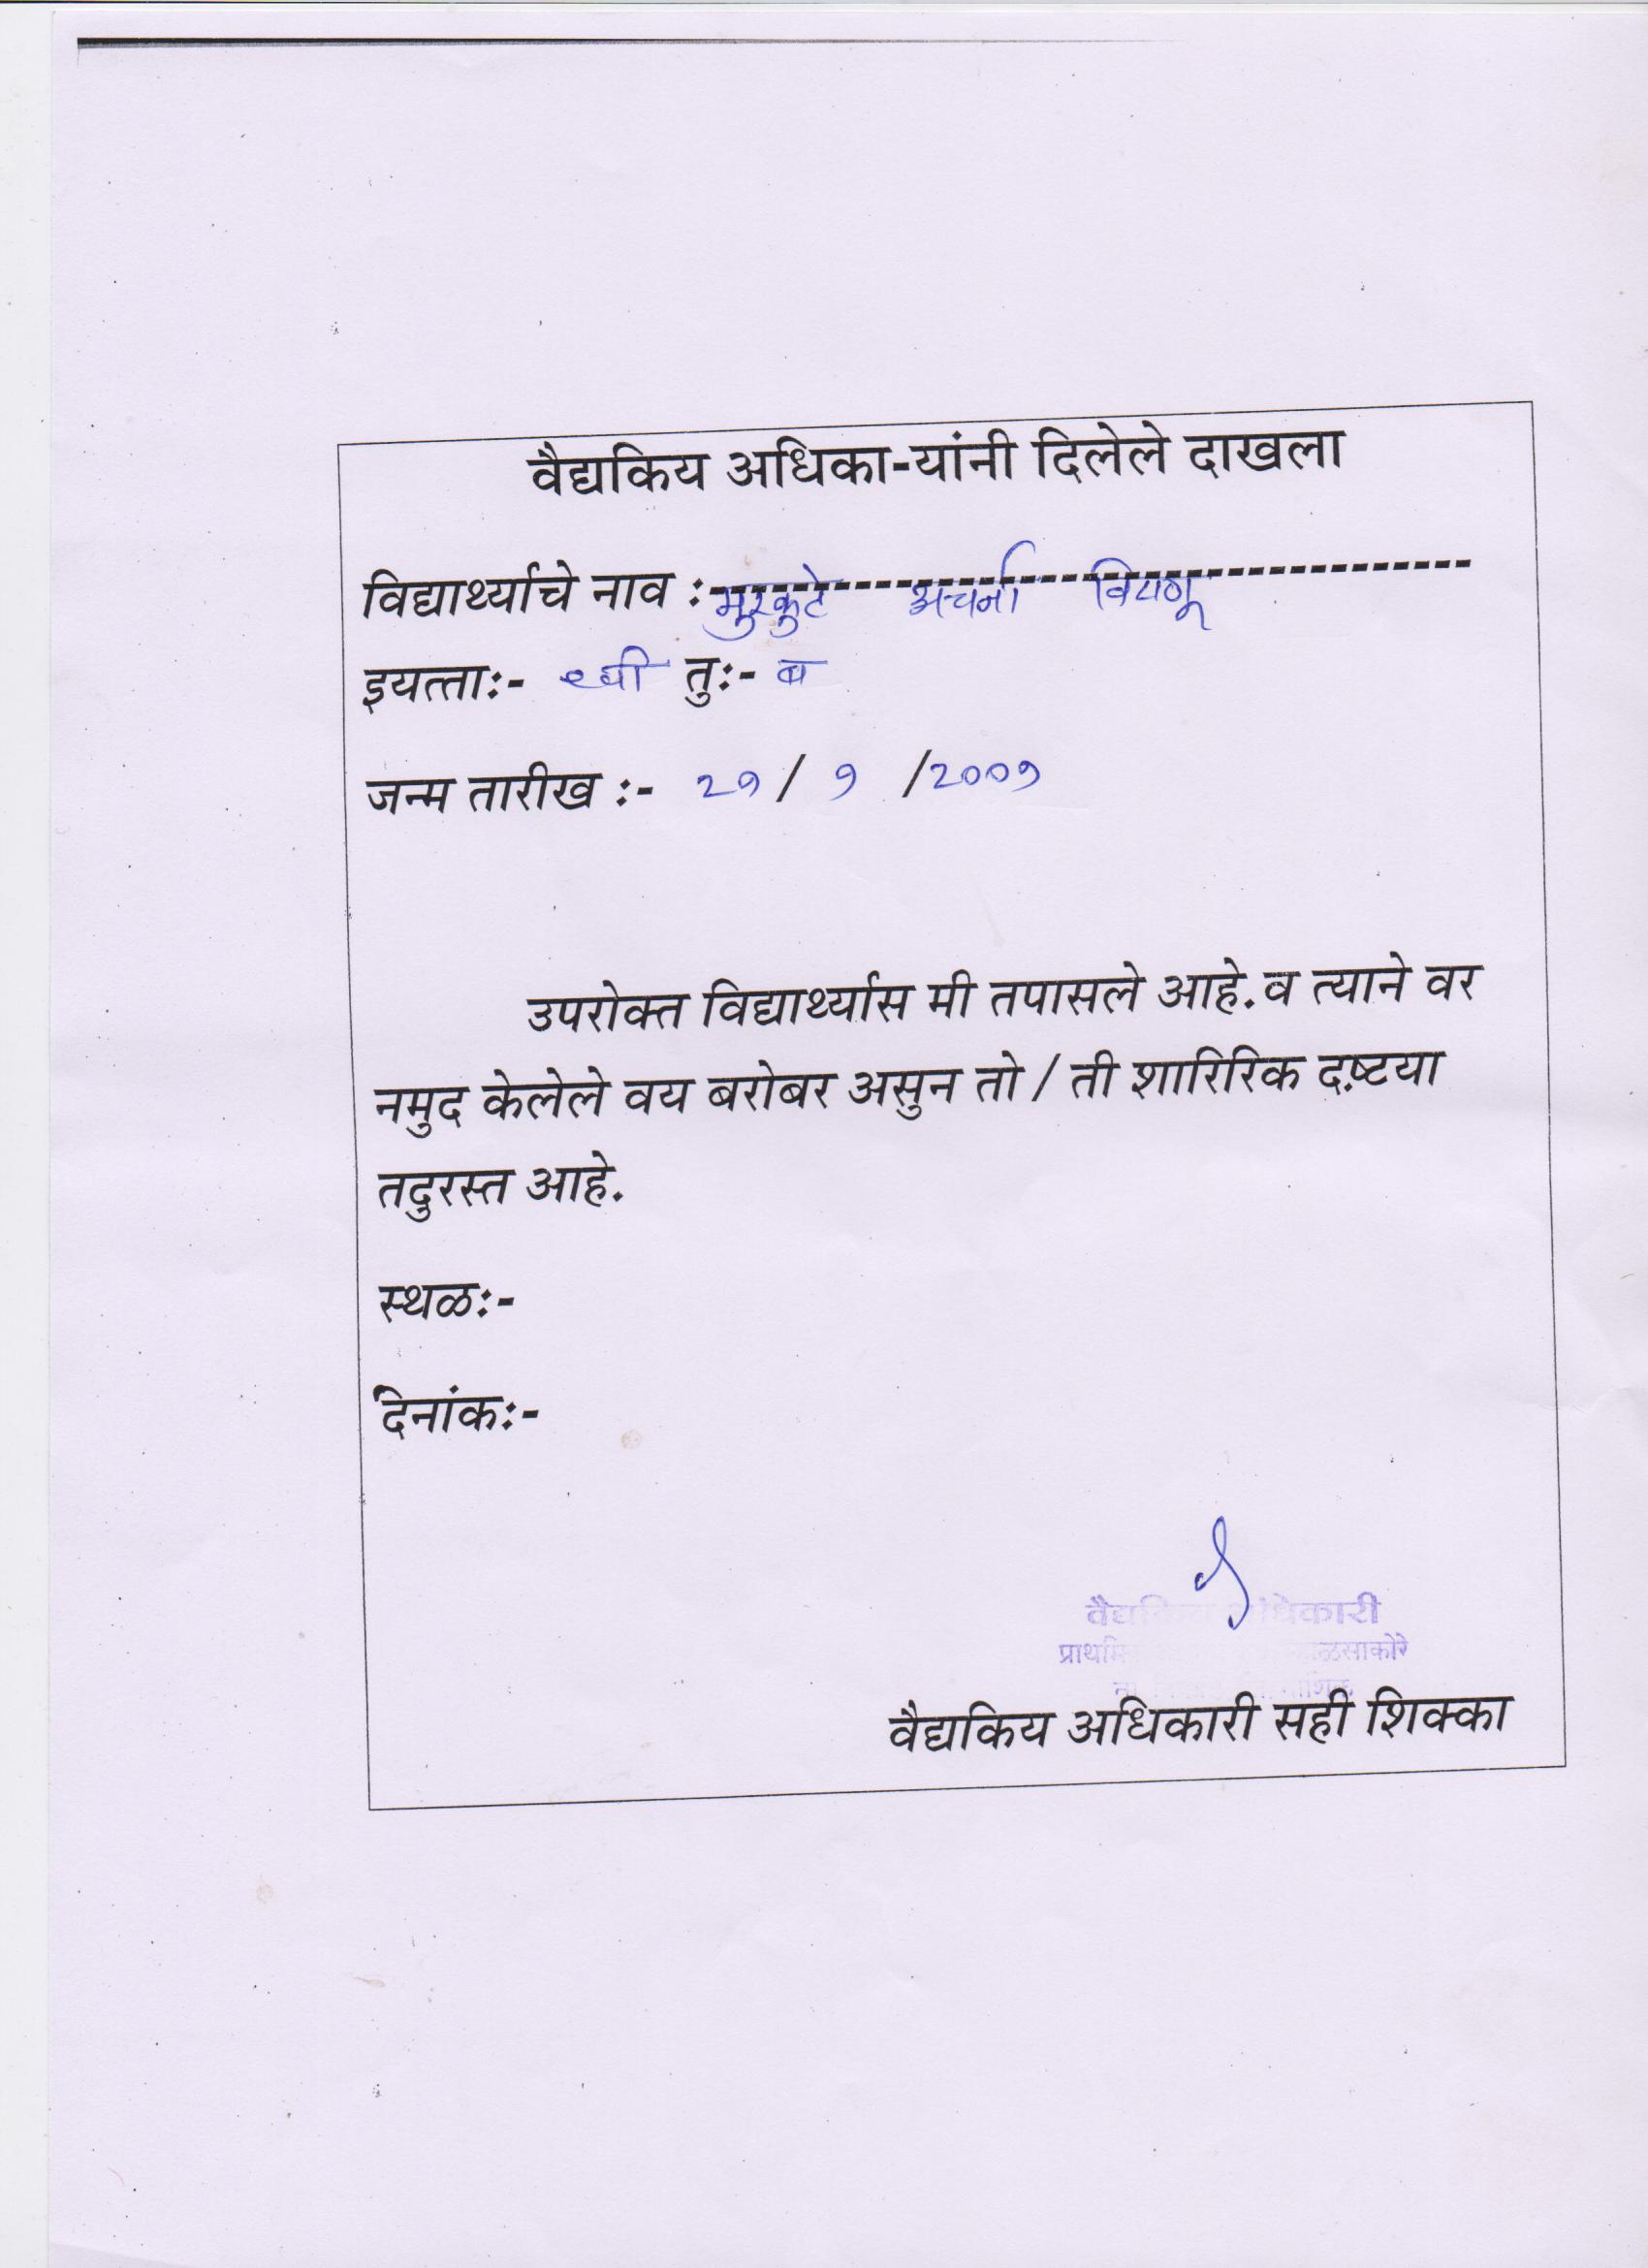 वैद्यकिय अधिका-यांनी दिलेले दाखला
विद्यार्थ्याचे नाव :- मुरकुटे अर्चना विष्णू
इयत्ताः- ९वी तुः- ब
जन्म तारीख :- २१ / १ / २००१
उपरोक्त विद्यार्थ्यास मी तपासले आहे. व त्याने वर
नमुद केलेले वय बरोबर असुन तो / ती शारिरिक दष्टया
तदुरस्त आहे.
स्थळः-
दिनांकः-
वैद्यकिय अधिकारी
वैद्यकिय अधिकारी सही शिक्का